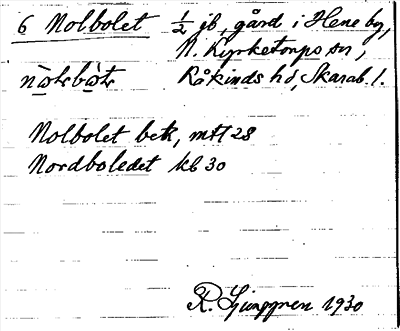 6 Nolbolet ½ jb, gård i Hene by,
N. Kyrketorps sn,
Kåkinds hd, Skarab. l.
Nolbolet bek, mtl 28
Nordboledet kb 30
R. Ljunggren 1930